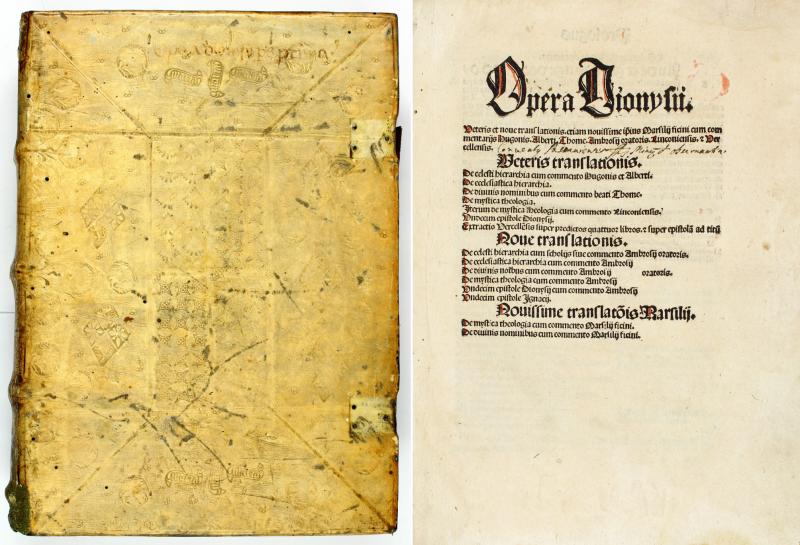 Opera Dionysii.
Veteris et noue translationis. etiam nouissime ipsius Marsilij ficini cum com
mentarijs Hugonis. Alberti. Thome. Ambrosij oratoris. Linconiensis. et Ver
cellensis.
Veteris translationis.
De celesti hierarchia cum commento Hugonis et Alberti.
De ecclesiastica hierarchia.
De diuinis nominibus cum commento beati Thome.
De mystica theologia.
Iterum de mystica theologia cum commento Linconiensis.
Undecim epistole Dionysij.
Extractio Vercellēsis super predictos quattuor libros. et super epistolā ad titū
Noue translationis.
De celesti hierarchia cum scholijs siue commento Ambrosij oratoris.
De ecclesiastica hierarchia cum commento Ambrosij
De diuinis noībus cum commento Ambrosij oratoris.
De mystica theologia cum commento Ambrosij
Undecim epistole Dionysij cum commento Ambrosij
Undecim epistole Ignacij.
Nouissime translatōis Marsilij.
De mystica theologia cum commento Marsilij ficini.
De diuinis nominibus cum commento Marsilij ficini.